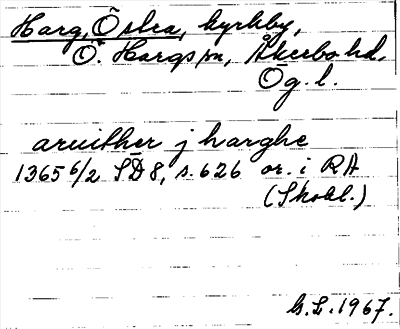 Harg, Östra, kyrkby,
Ö. Hargs sn, Åkerbo hd,
Ög. l.
aruither j harghe
1365 6/2 SD 8, s. 626 or. i RA
(Skokl.)
G.L. 1967.